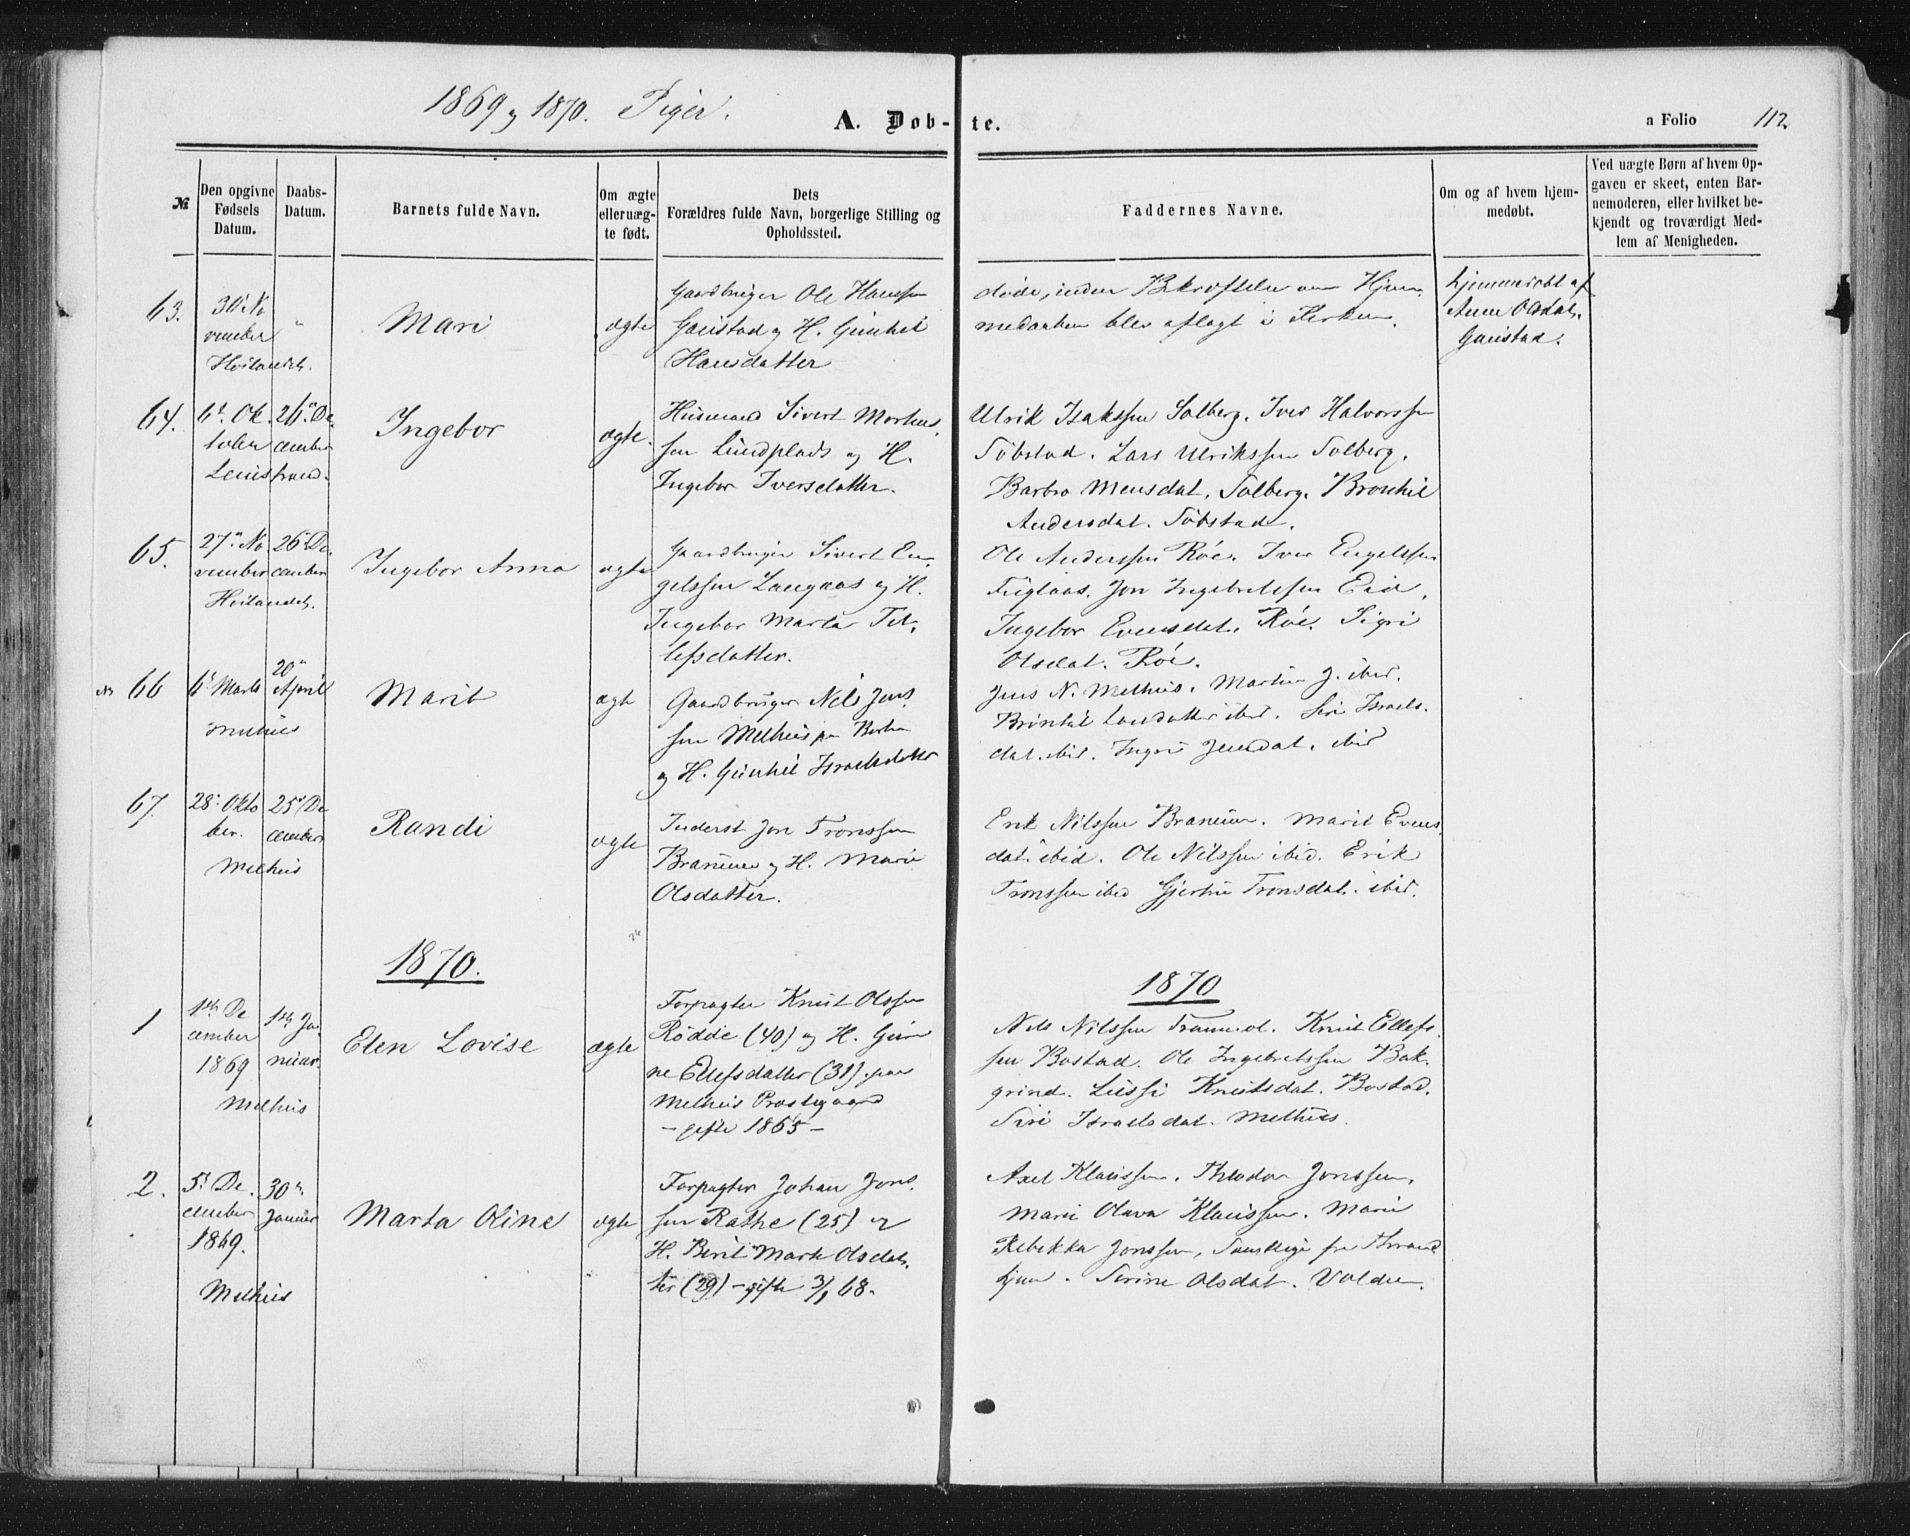 1869 og 1870. Piger.
A. Døb-te.
a Folio 112.
№
Den opgivne Fødsels Datum.
Daabs-Datum.
Barnets fulde Navn.
Om ægte eller uæg-te født.
Dets Forældres fulde Navn, borgerlige Stilling og Opholdssted.
Faddernes Navne.
Om og af hvem hjem-medøbt.
Ved uægte Børn af hvem Op-gaven er skeet, enten Bar-nemoderen, eller hvilket be-kjendt og troværdigt Med-lem af Menigheden.
63.
30' No
vember
"
Høilandet.
Mari
ægte
Gaardbruger Ole Hansen
Gaustad og H. Gunhil
Hansdatter
døde, inden Bekræftelse om Hjem
medaaben blev aflagt i Kirken.
hjemmedøbt af
Anne Olsdat.
Gaustad.
64.
6t. Ok.
tober
26n De.
cember
Leinstrand.
Ingebor
ægte.
Husmand Sivert Morten.
sen Lundplads og H.
Ingebor Iversdatter.
Ulrik Isakssen Solberg. Iver Halvorssen
Tøbstad. Lars Ulrikssen Solberg.
Barbro Monsdat. Solberg. Bronhil
Andersdat. Tøbstad.
65.
27n No
vember
26n De.
cember
Høilandet.
Ingebor Anna
ægte
Gaardbruger Sivert En
gelssen Langaas og H.
Ingebor Marta Tel.
lefsdatter.
Ole Anderssen Røe. Iver Engelssen
Fuglaas. Jon Ingebretssen Eid.
Ingebor Evensdat. Røe. Sigri
Olsdat. Røe.
No 66
6t Marts
20n
April
Melhus
Marit
ægte
Gaardbruger Nils Jens
sen Melhus
og H. Gunhil Israelsdatter
Jens N. Melhus. Martin J. ibid.
Brønhil Larsdatter ibid. Siri Israels.
dat. ibid. Ingri Jensdat. ibid
67.
28' Okto
ber.
25n De
cember
Melhus
Randi
ægte
Inderst Jon Tronssen
Branum og H. Marie
Olsdatter.
Erik Nilssen Branum. Marit Evens
dat. ibid. Ole Nilssen ibid. Erik
Tronssen ibid Gjertru Tronsdat. ibid.
1870.
1870
1
1ste De
cember
1869
1ste Ja
nuar.
Melhus
Elen Lovise
ægte
Forpagter Knut Olssen
Rødde (40) og H. Gun
ne Ellefsdatter (31) paa
Melhus Præstegaard
- gifte 1865 -
Nils Nilssen Ellefs.
sen Bostad. Ole Ingebretssen Bak.
grind. Lussi Knutsdat. Bostad.
Siri Israelsdat. Melhus.
2.
5t De.
cember
1869.
30n
Januar
Melhus
Marta Oline
ægte
Forpagter Johan Jons
sen Rathe (25) og
H. Berit Marta Olsdat.
ter (29) - gifte 3/1 68.
Axel Klaussen. Theodor Jonssen.
Marie Olava Klaussen. Marie
Rebekka Jonssen, Samtlige fra Thrond
hjem. Serine Olsdat. Volden.